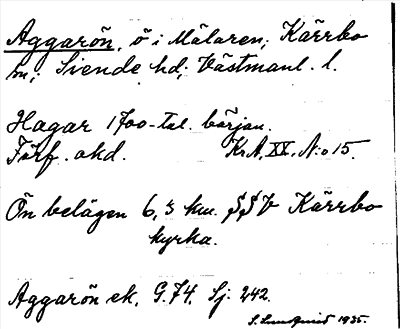 Aggarön, ö i Mälaren; Kärrbo
sn; Siende hd; Västmanl. l.
Hagar 1700-tal. börjar.
Förf. okd. KrA, XX, N:o 15.
Ön belägen 6,3 km. SSV Kärrbo
kyrka.
Aggarön ek. G.74. Sj: 242.
S. Lundquist 1935.